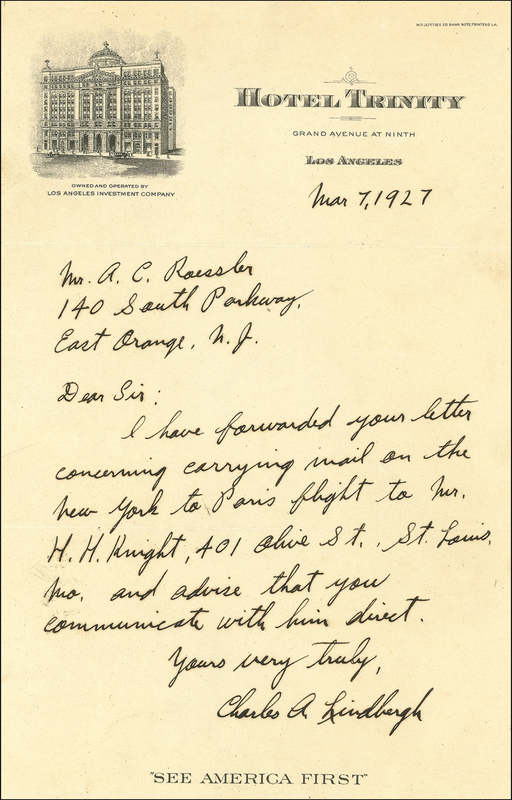 HOTEL TRINITY
GRAND AVENUE AT NINTH
LOS ANGELES
OWNED AND OPERATED BY
LOS ANGELES INVESTMENT COMPANY
Mar 7, 1927
Mr. A. C. Roessler
140 South Parkway,
East Orange, N. J.
Dear Sir:
I have forwarded your letter
concerning carrying mail on the
New York to Paris flight to Mr.
H. H. Knight, 401 Olive St., St. Louis,
Mo. and advise that you
communicate with him direct.
Yours very truly,
Charles A Lindbergh
"SEE AMERICA FIRST"